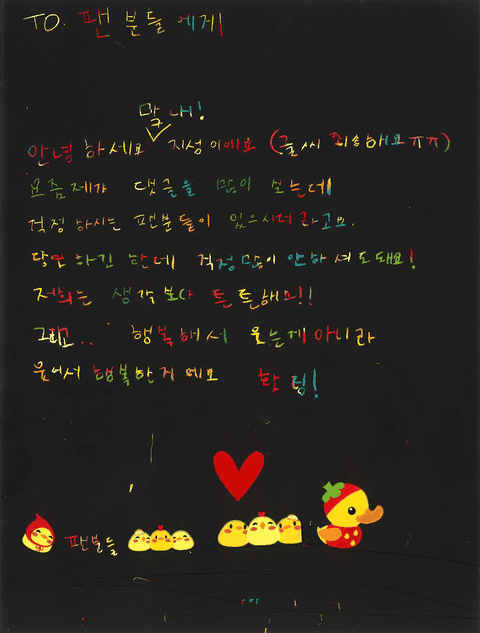 TO.팬 분들 에게
막내!
안녕 하세요 지성이에요 (글씨 죄송해요 ㅠㅠ)
요즘제가 댓글을 많이 보는데
걱정 하시는 팬분들이 있으시더라고요.
당연 하긴 한데 걱정많이 안하셔도돼요!
저희는 생각보다 튼튼해요!!
그리고.. 행복해서 웃는게 아니라
웃어서 행복한거에요 화팅!
팬분들